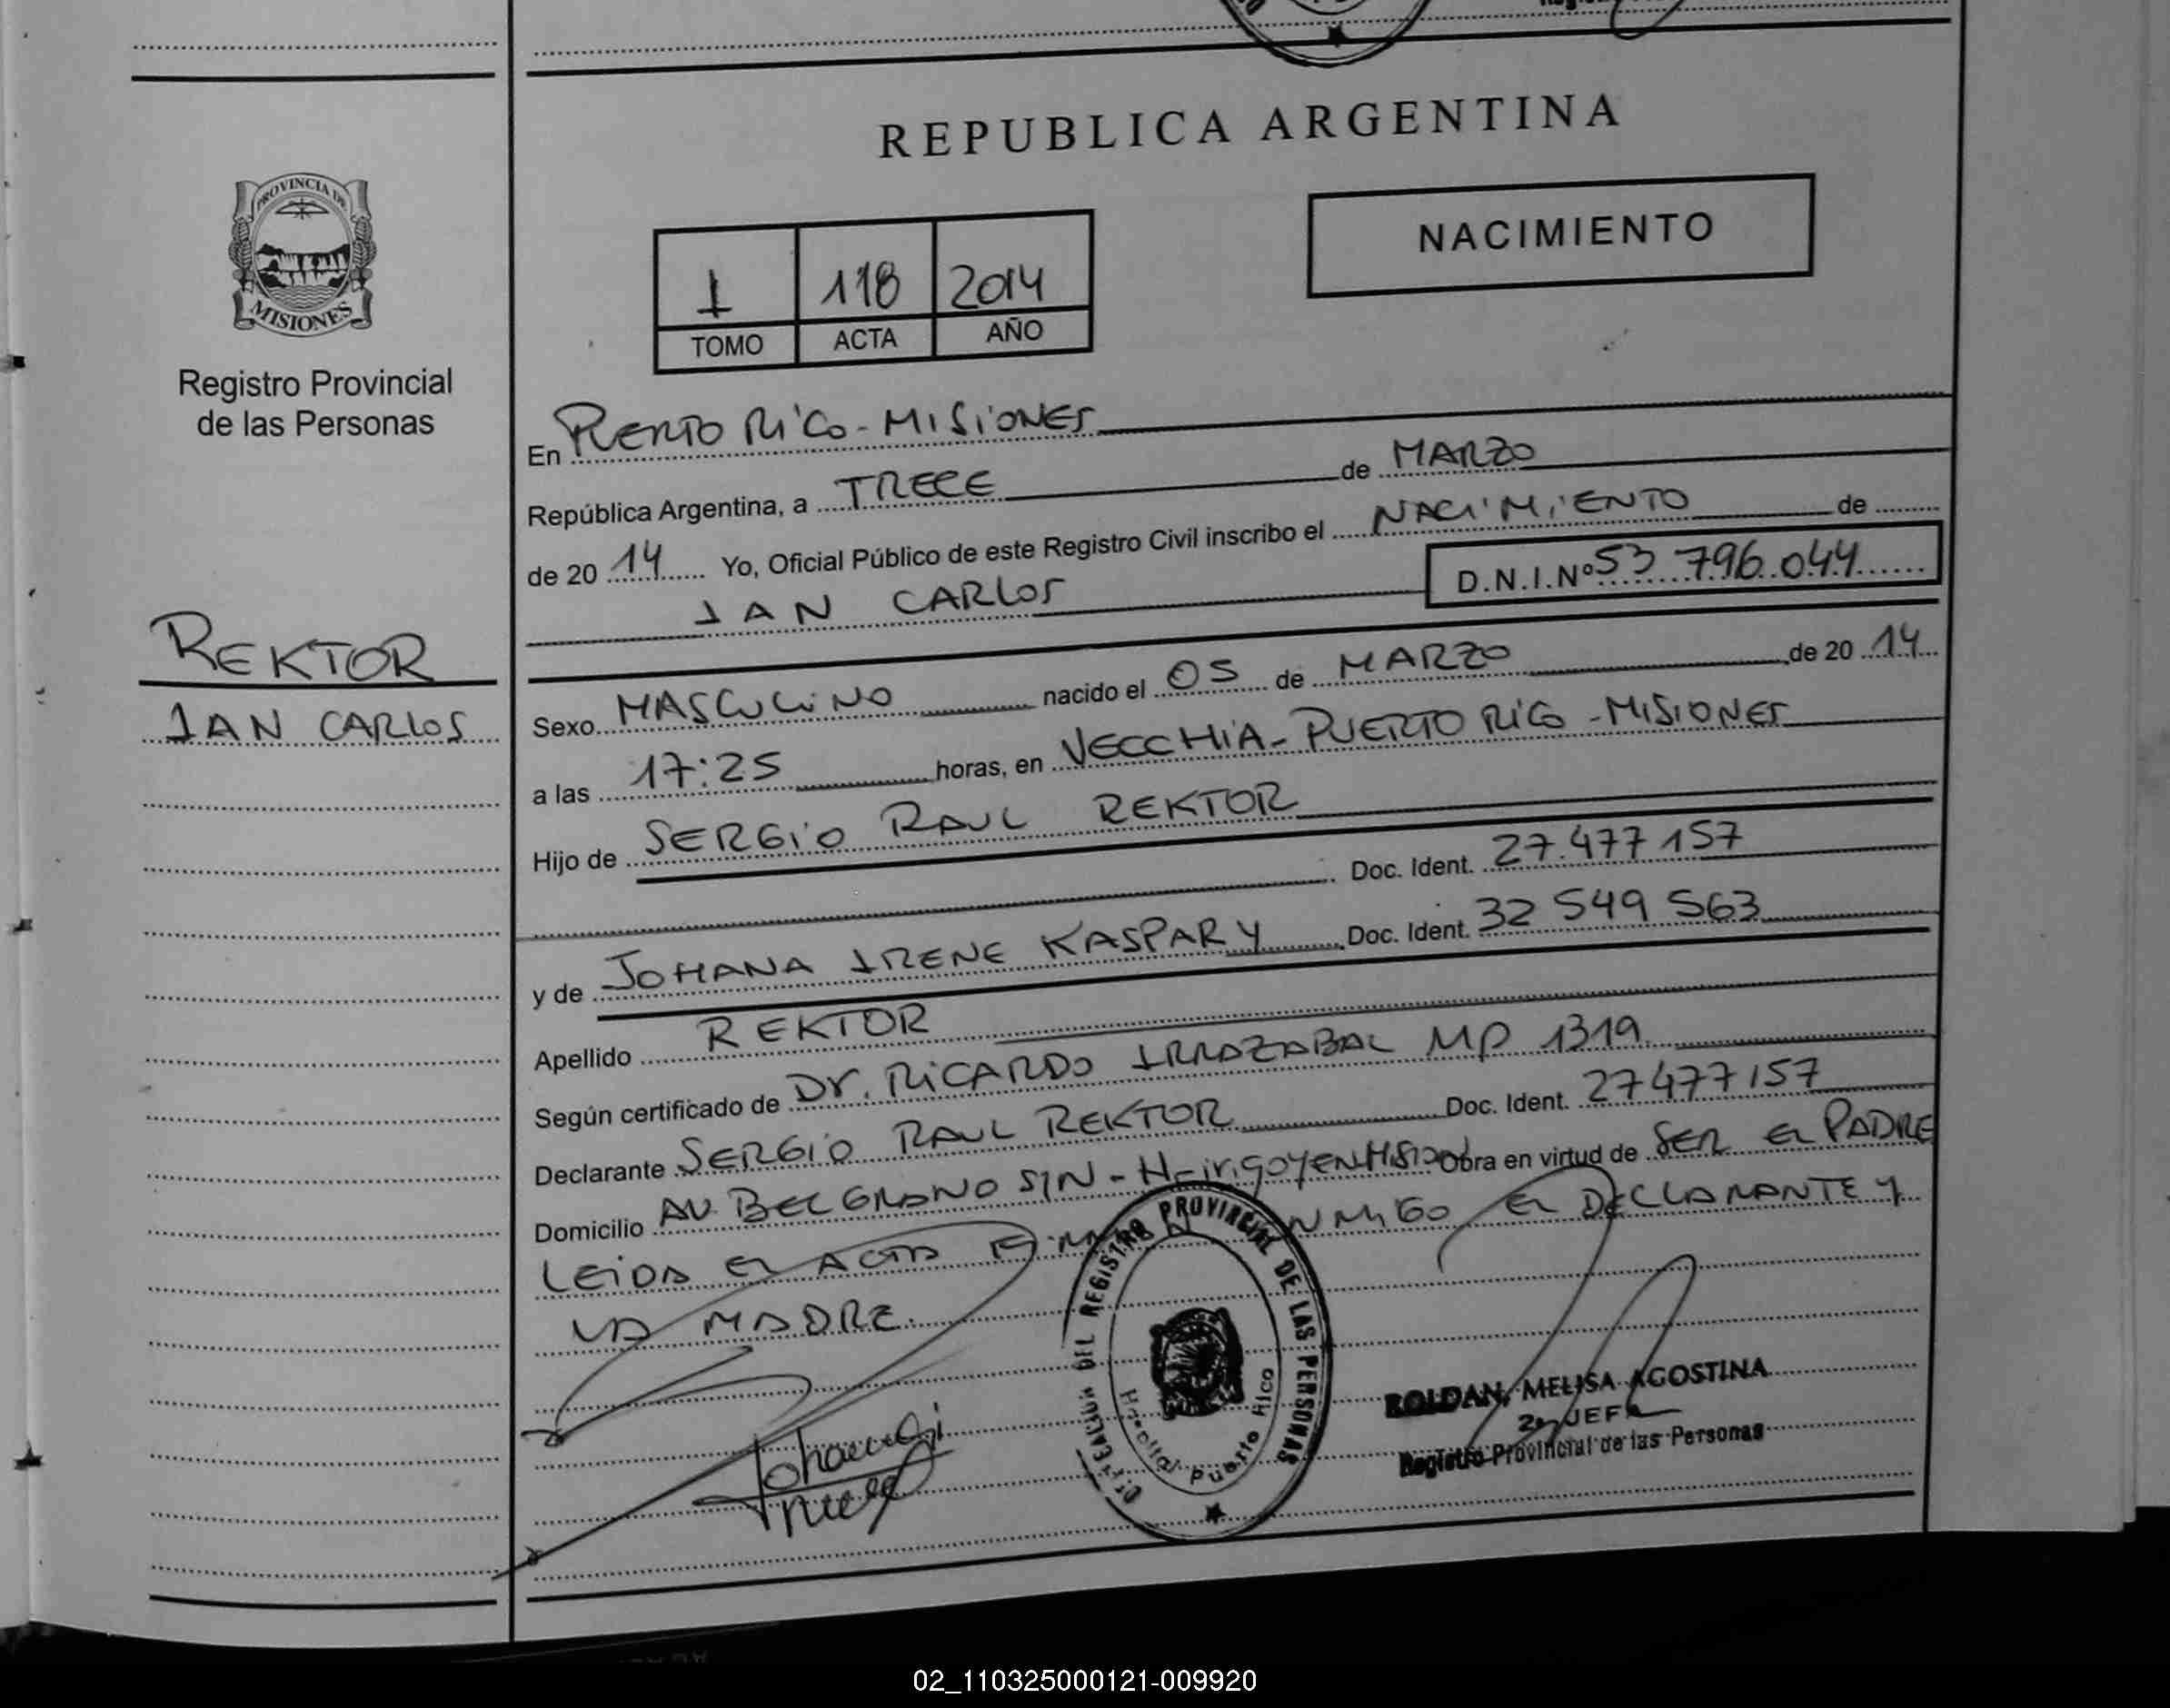 REPUBLICA ARGENTINA
PROVINCIA DE
MISIONES
Registro Provincial
de las Personas
REKTOR
IAN CARLOS
1 118 2014
TOMO ACTA AÑO
NACIMIENTO
En PUERTO RICO - MISIONES
República Argentina, a TRECE de MARZO
de 20 14 Yo, Oficial Público de este Registro Civil inscribo el NACIMIENTO de
IAN CARLOS D.N.I.Nº 53 796.044
Sexo MASCULINO nacido el 05 de MARZO de 20 14
a las 17:25 horas, en VECCHIA - PUERTO RICO - MISIONES
Hijo de SERGIO RAUL REKTOR
Doc. Ident. 27.477 157
y de JOHANA IRENE KASPARY Doc. Ident. 32 549 563
Apellido REKTOR
Según certificado de Dr. RICARDO IRRAZABAL MP 1319
Declarante SERGIO RAUL REKTOR Doc. Ident. 27477157
Domicilio AV. BELGRANO S/N - H-irigoyen Obra en virtud de SER EL PADRE
LEIDA EL ACTA EL DECLARANTE Y
LA MADRE.
DEL REGISTRO PROVINCIAL DE LAS PERSONAS
Hospital Puerto Rico
ROLDAN, MELISA AGOSTINA
JEFA
Registro Provincial de las Personas
02_110325000121-009920